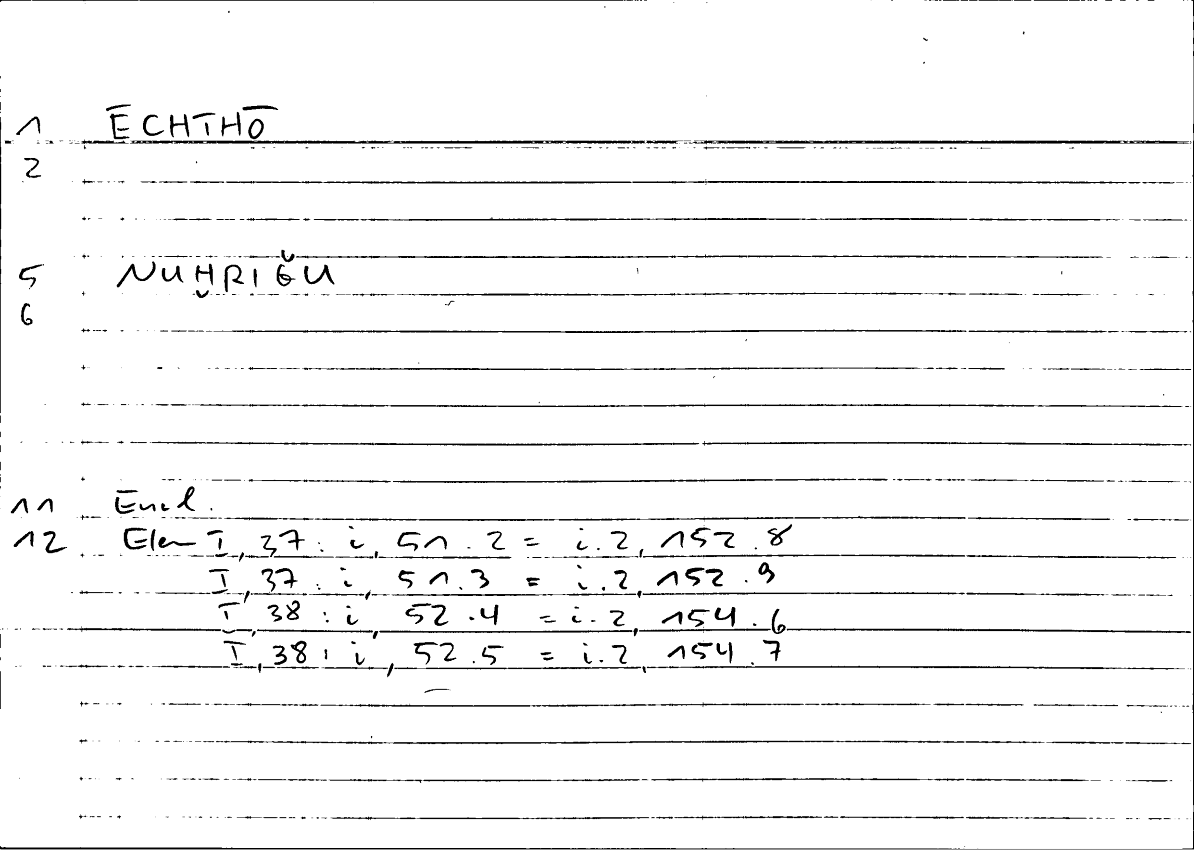 1 ĒCHTHŌ
2
5 NUḪRIǦU
6
11 Eucl.
12 Elem I, 37 : i, 51.2 = i.2, 152.8
I, 37 : i, 51.3 = i.2, 152.9
I, 38 : i, 52.4 = i.2, 154.6
I, 38 : i, 52.5 = i.2, 154.7